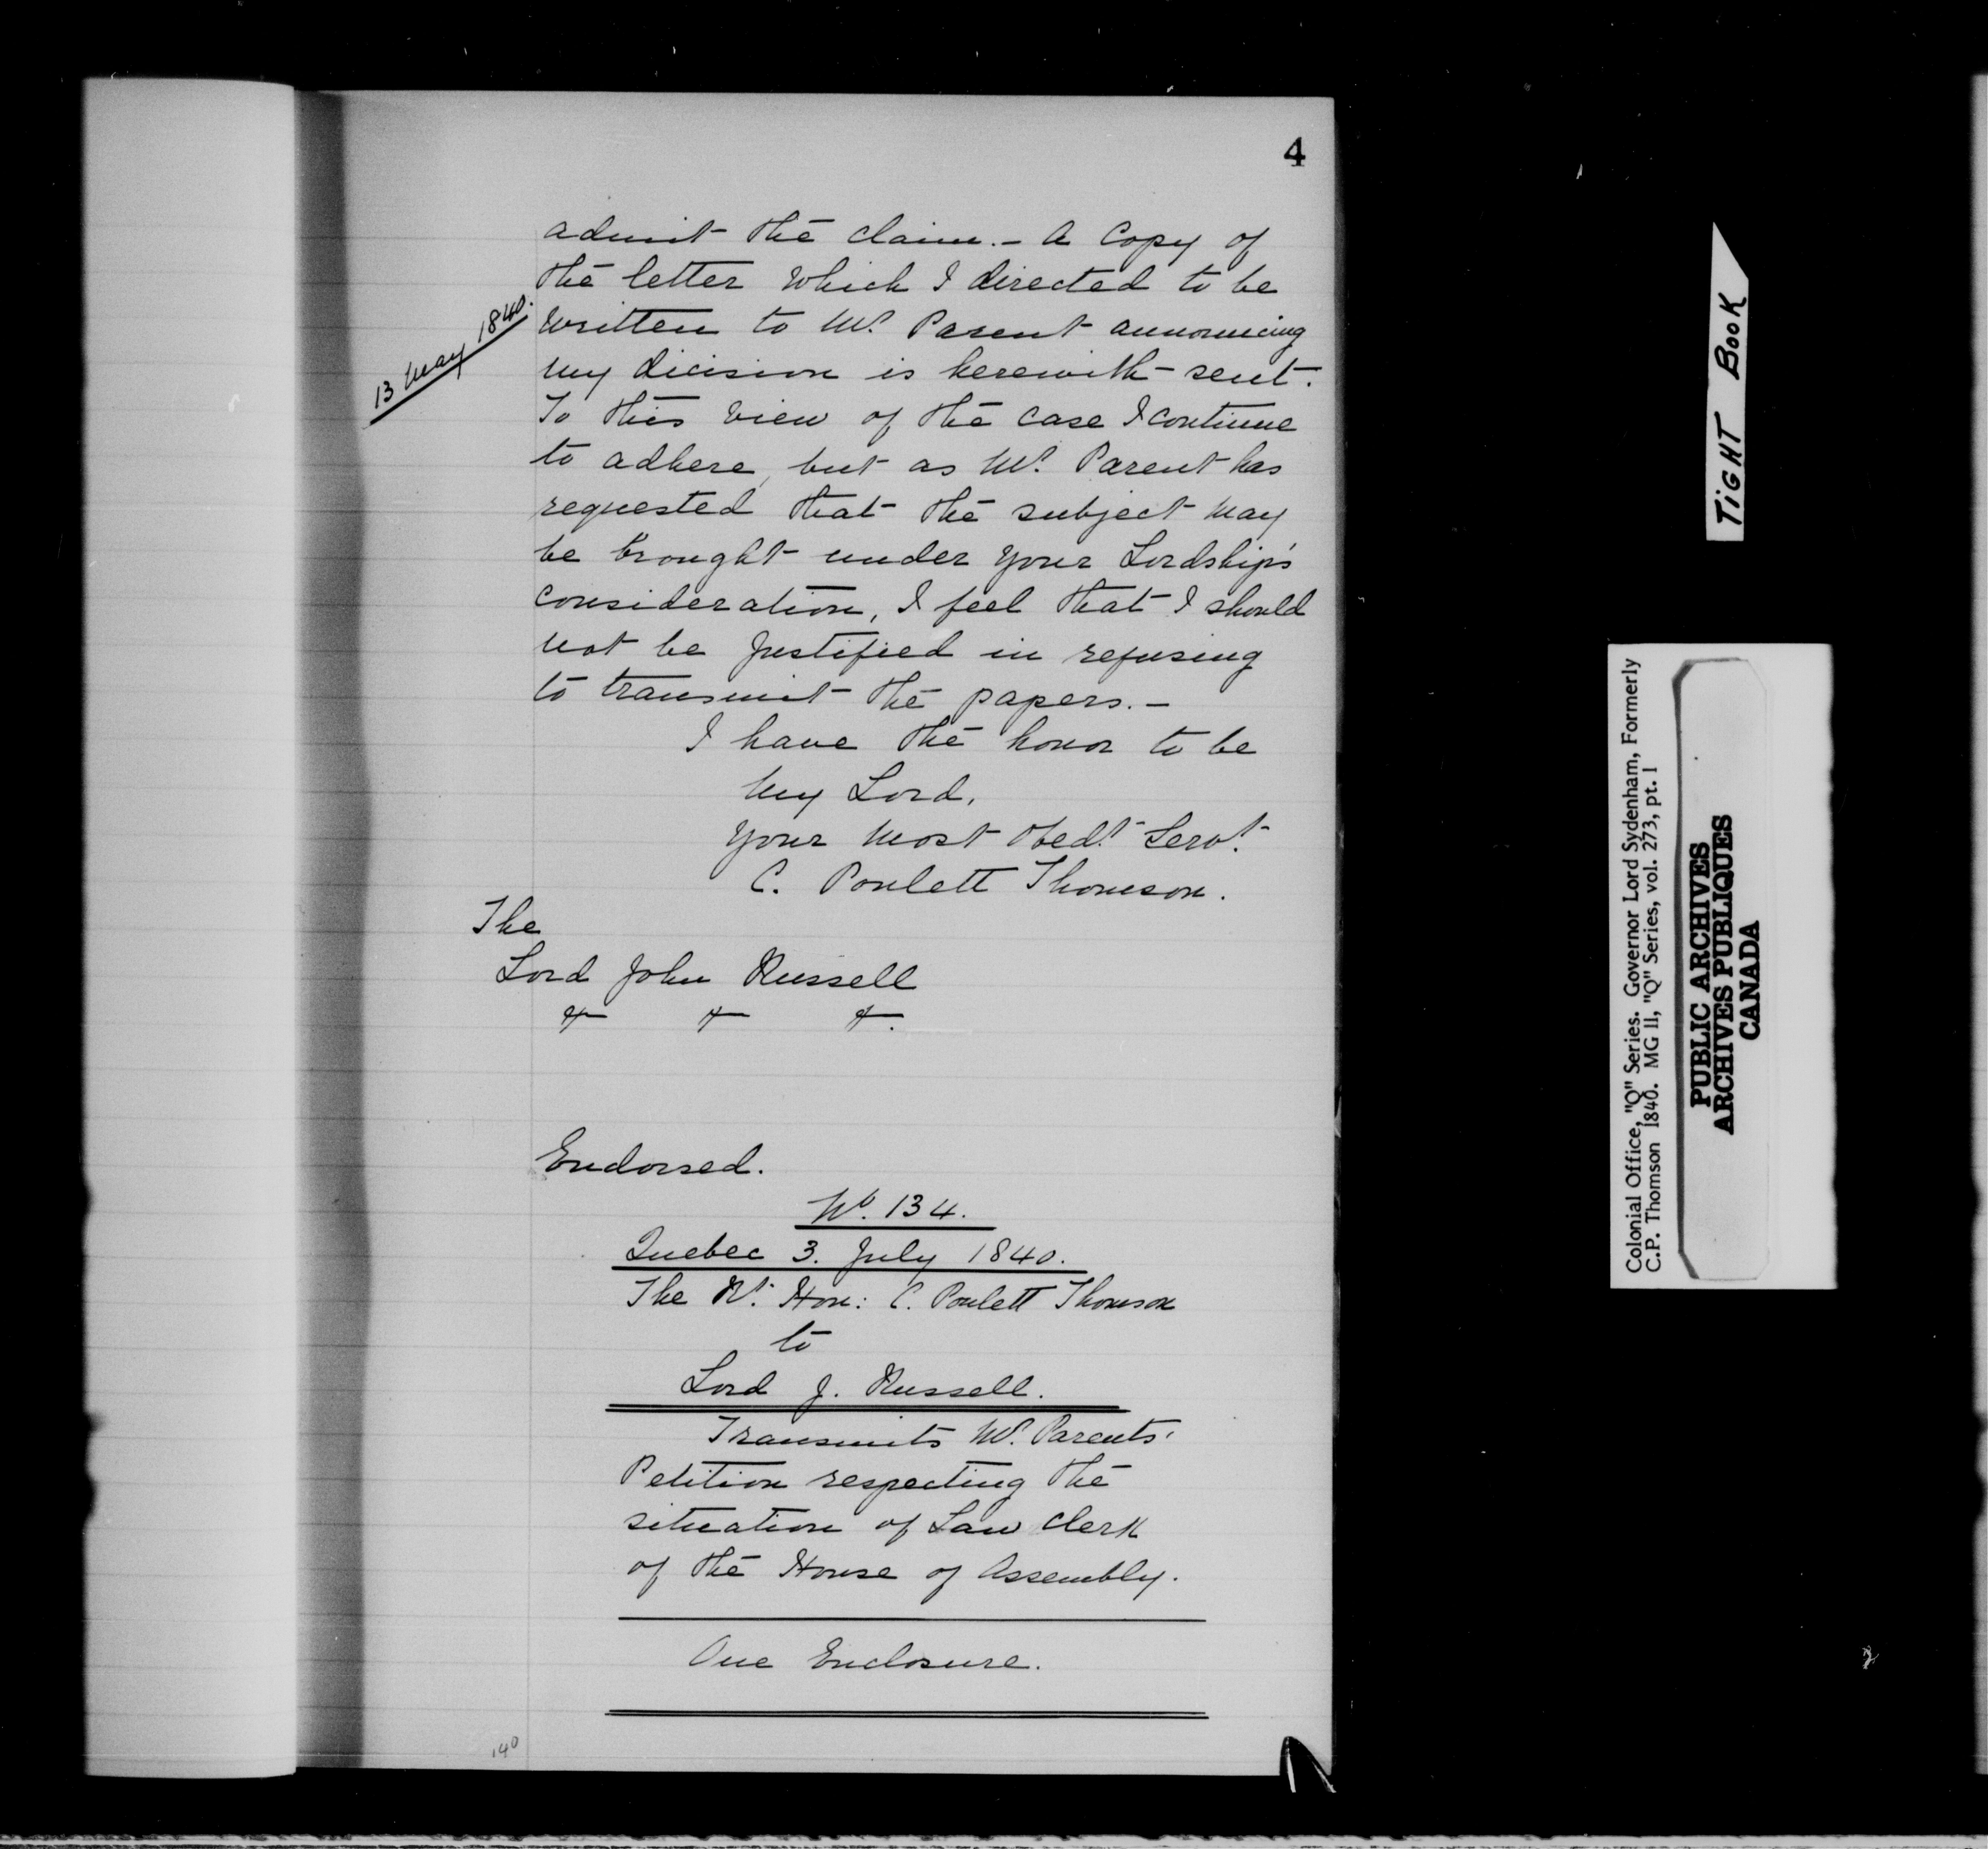 4
admit the claim. - A Copy of
the letter which I directed to be
13 May 1840.
written to Mr. Parent announcing
my dicision is herewith sent.
To this view of the case I continue
to adhere, but as Mr. Parent has
requested that the subject may
be brought under your Lordship's
consideration, I feel that I should
not be justified in refusing
to transmit the papers. -
I have the honor to be
My Lord,
Your Most Obedt. Servt.
C. Poulett Thomson.
The
Lord John Russell
Endorsed.
No. 134.
Quebec 3. July 1840.
The Rt. Hon: C. Poulett Thomson
to
Lord J. Russell.
Transmits Mr. Parents'
Petition respecting the
situation of Law Clerk
of the House of Assembly.
One Enclosure.
140
TIGHT BOOK
Colonial Office, "Q" Series. Governor Lord Sydenham, Formerly
C.P. Thomson 1840. MG 11, "Q" Series, vol. 273, pt. 1
PUBLIC ARCHIVES
ARCHIVES PUBLIQUES
CANADA